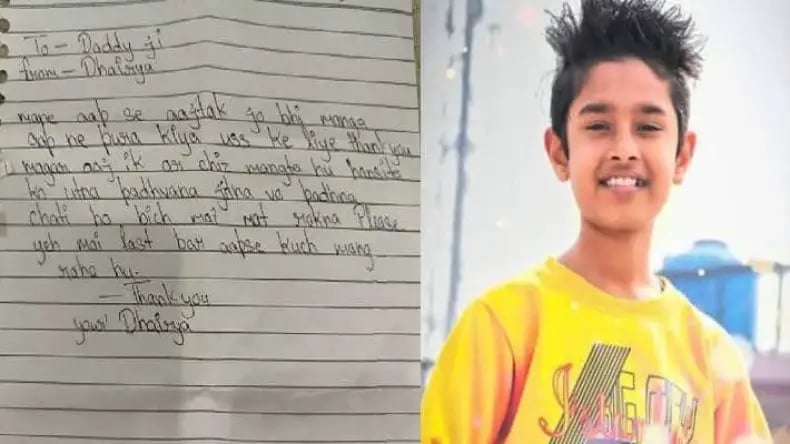 To - Daddy ji
from - Dhairya
mane aap se aajtak jo bhi manga
aap ne pura kiya uss ke liye thank you
magar aaj ik or chiz mangta hu hansita
ko utna padhvana jitna vo padhna
chati ho bich mai mat rokna Please
yeh mai last bar aapse kuch mang
raha hu.
- Thank you
your Dhairya